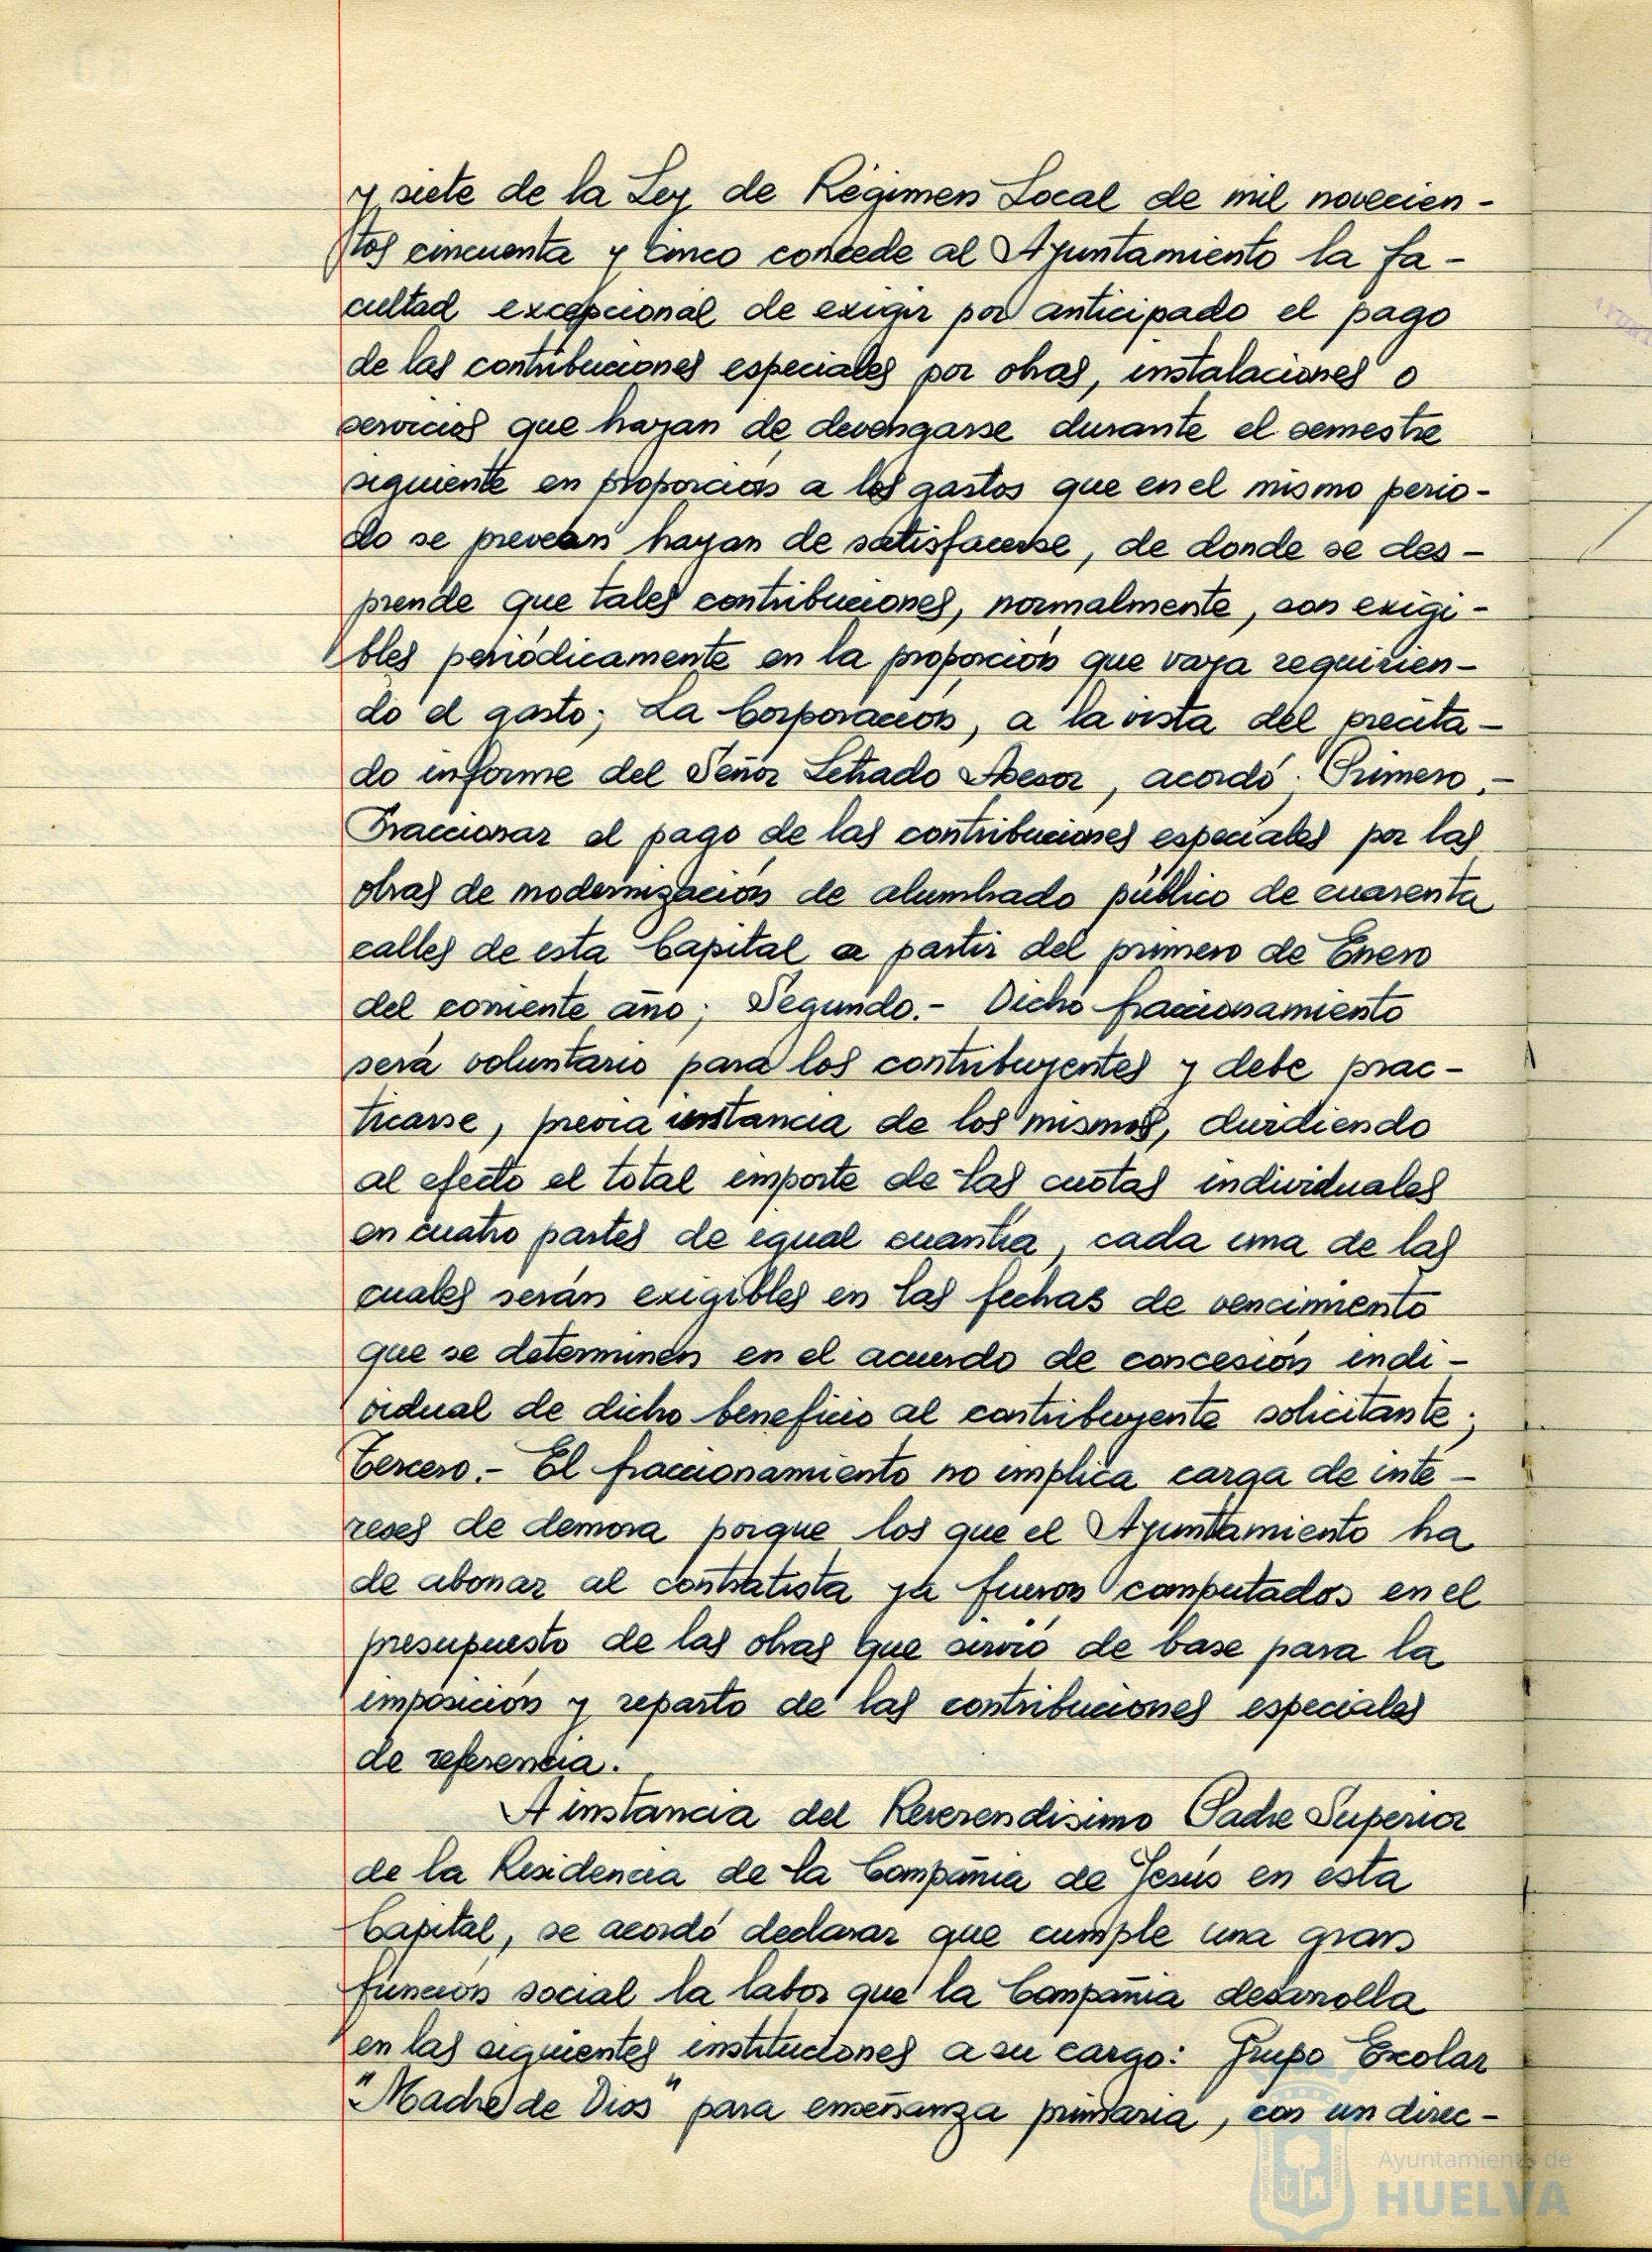 y siete de la Ley de Régimen Local de mil novecien-
tos cincuenta y cinco concede al Ayuntamiento la fa-
cultad excepcional de exigir por anticipado el pago
de las contribuciones especiales por obras, instalaciones o
servicios que hayan de devengarse durante el semestre
siguiente en proporción a los gastos que en el mismo perio-
do se prevean hayan de satisfacerse, de donde se des-
prende que tales contribuciones, normalmente, son exigi-
bles periódicamente en la proporción que vaya requirien-
do el gasto; La Corporación, a la vista del precita-
do informe del Señor Letrado Asesor, acordó: Primero.-
Fraccionar el pago de las contribuciones especiales por las
obras de modernización de alumbrado público de cuarenta
calles de esta Capital a partir del primero de Enero
del corriente año; Segundo.- Dicho fraccionamiento
será voluntario para los contribuyentes y debe prac-
ticarse, previa instancia de los mismos, dividiendo
al efecto el total importe de las cuotas individuales
en cuatro partes de igual cuantía, cada una de las
cuales serán exigibles en las fechas de vencimiento
que se determinen en el acuerdo de concesión indi-
vidual de dicho beneficio al contribuyente solicitante;
Tercero.- El fraccionamiento no implica carga de inte-
reses de demora porque los que el Ayuntamiento ha
de abonar al contratista ya fueron computados en el
presupuesto de las obras que sirvió de base para la
imposición y reparto de las contribuciones especiales
de referencia.
A instancia del Reverendísimo Padre Superior
de la Residencia de la Compañía de Jesús en esta
Capital, se acordó declarar que cumple una gran
función social la labor que la Compañía desarrolla
en las siguientes instituciones a su cargo: Grupo Escolar
"Madre de Dios" para enseñanza primaria, con un direc-
Ayuntamiento de
HUELVA